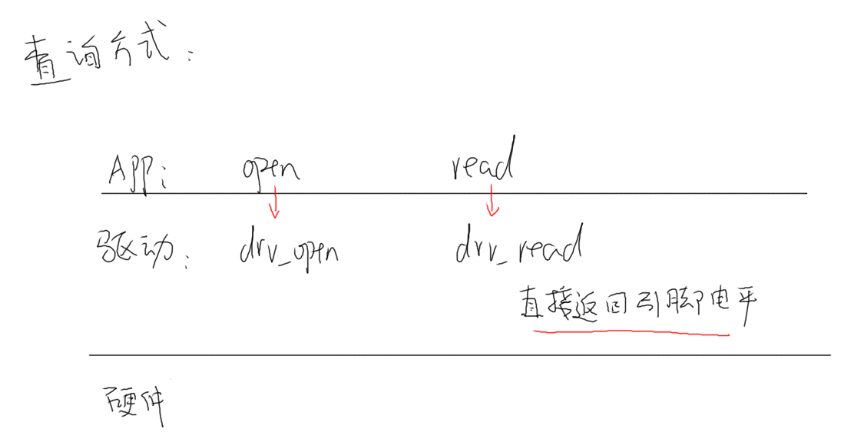 查询方式：
APP： open read
驱动： drv_open drv_read
直接返回引脚电平
硬件